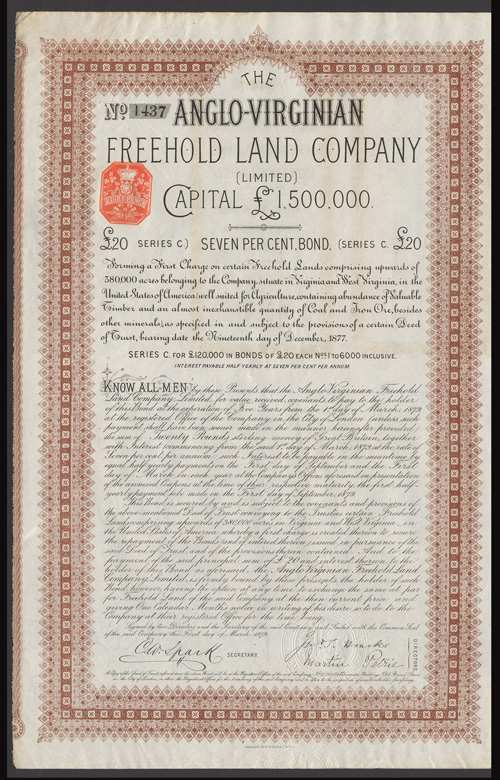 THE
No 1437 ANGLO-VIRGINIAN
FREEHOLD LAND COMPANY
(LIMITED)
CAPITAL £1,500,000.
£20 SERIES C.) SEVEN PER CENT, BOND, (SERIES C. £20
Forming a First Charge on certain Freehold Lands comprising upwards of
380,000 acres belonging to the Company, situate in Virginia and West Virginia, in the
United States of America (well suited for Agriculture, containing abundance of Valuable
Timber and an almost inexhaustible quantity of Coal and Iron Ore, besides
other minerals) as specified in and subject to the provisions of a certain Deed
of Trust, bearing date the Nineteenth day of December, 1877.
SERIES C. FOR £120,000 IN BONDS OF £20 EACH Nos 1 TO 6000 INCLUSIVE.
INTEREST PAYABLE HALF YEARLY AT SEVEN PER CENT PER ANNUM
KNOW ALL MEN by these Presents that the Anglo-Virginian Freehold
Land Company, Limited, for value received, covenants to pay to the holder
of this Bond at the expiration of Five Years from the 1st day of March
at the registered Office of the Company in the City of London (unless such
payment shall have been sooner made in the manner hereinafter provided)
the sum of Twenty Pounds sterling money of Great Britain, together
with Interest commencing from the said 1st day of March at the rate of
Seven per cent per annum, such Interest to be payable in the meantime by
equal half yearly payments on the First day of September and the First
day of March in each year at the Company's Offices aforesaid on presentation
of the annexed Coupons at the time of their respective maturity, the first half-
yearly payment to be made on the First day of September
This Bond is secured by and is subject to the covenants and provisions of
the above mentioned Deed of Trust conveying to the Trustees certain Freehold
Lands comprising upwards of 380,000 acres in Virginia and West Virginia, in
the United States of America, whereby a first charge is created thereon to secure
the repayment of the Bonds and interest thereon issued in pursuance of the
said Deed of Trust and of the provisions therein contained. And to the
payment of the said principal sum of £20 and interest thereon to the
holder of this Bond as aforesaid, the Anglo-Virginian Freehold Land
Company, Limited, is firmly bound by these presents the holder of such
Bond however, having the option at any time to exchange the same at par
for Freehold Land of the said Company at the then current price and
giving One Calendar Month's notice in writing of his desire so to do to the
Company at their registered Office for the time being.
Signed by Two Directors and the Secretary of the said Company and Sealed with the Common Seal
of the said Company this First day of March
SECRETARY.
Martin Petrie
DIRECTORS